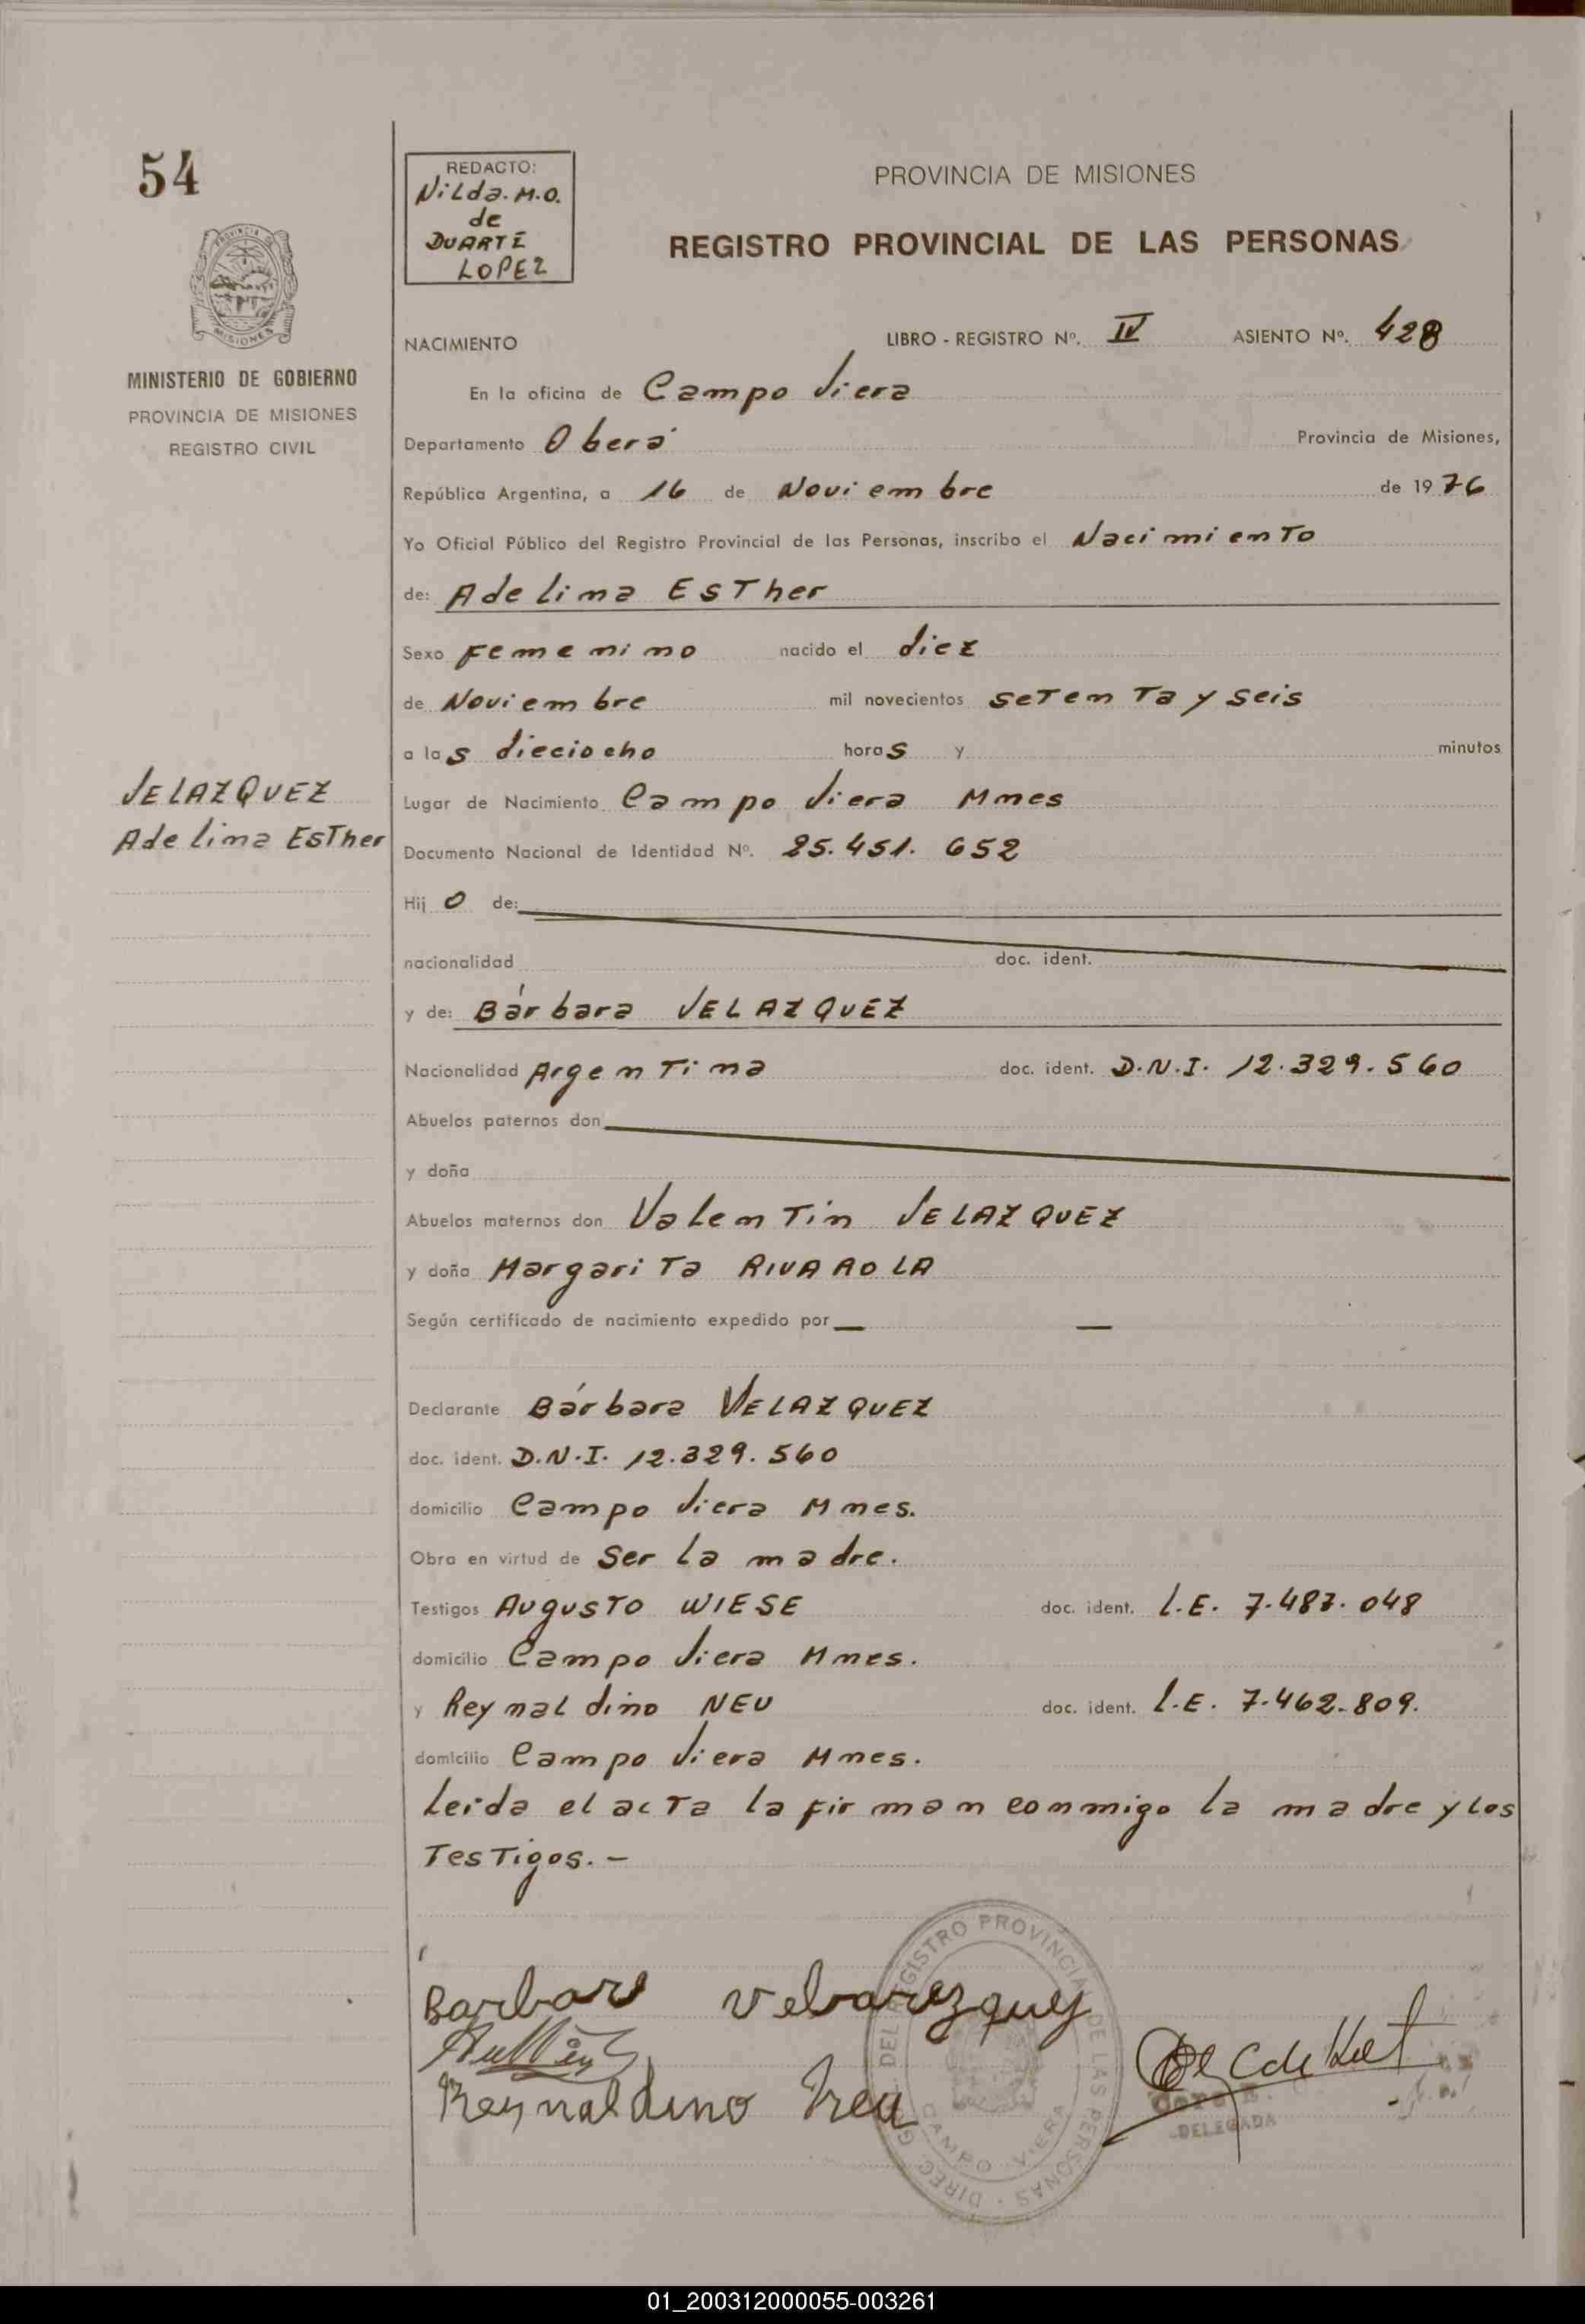 54
REDACTO:
Nilda. M.O.
de
DUARTE
LOPEZ
PROVINCIA DE MISIONES
REGISTRO PROVINCIAL DE LAS PERSONAS
MISIONES
MINISTERIO DE GOBIERNO
PROVINCIA DE MISIONES
REGISTRO CIVIL
NACIMIENTO LIBRO - REGISTRO Nº. IV ASIENTO Nº. 428
En la oficina de Campo Viera
Departamento Oberá Provincia de Misiones,
República Argentina, a 16 de Noviembre de 1976
Yo Oficial Público del Registro Provincial de las Personas, inscribo el Nacimiento
de: Adelina Esther
Sexo Femenino nacido el diez
de Noviembre mil novecientos setenta y seis
a las dieciocho horas y minutos
VELAZQUEZ
Adelina Esther
Lugar de Nacimiento Campo Viera Mnes
Documento Nacional de Identidad Nº. 25.451.652
Hijo de:
nacionalidad doc. ident.
y de: Bárbara VELAZQUEZ
Nacionalidad Argentina doc. ident. D.N.I. 12.329.560
Abuelos paternos don
y doña
Abuelos maternos don Valentin VELAZQUEZ
y doña Margarita RIVAROLA
Según certificado de nacimiento expedido por — —
Declarante Bárbara VELAZQUEZ
doc. ident. D.N.I. 12.329.560
domicilio Campo Viera Mnes.
Obra en virtud de ser la madre.
Testigos Augusto WIESE doc. ident. L.E. 7.487.048
domicilio Campo Viera Mnes.
y Reynaldino NEU doc. ident. L.E. 7.462.809.
domicilio Campo Viera Mnes.
Leida el acta la firman conmigo la madre y los
Testigos.-
Barbara Velarezquez
Reynaldino Neu
DIREC. GRAL. DEL REGISTRO PROVINCIAL DE LAS PERSONAS
CAMPO VIERA
DELEGADA
01_200312000055-003261